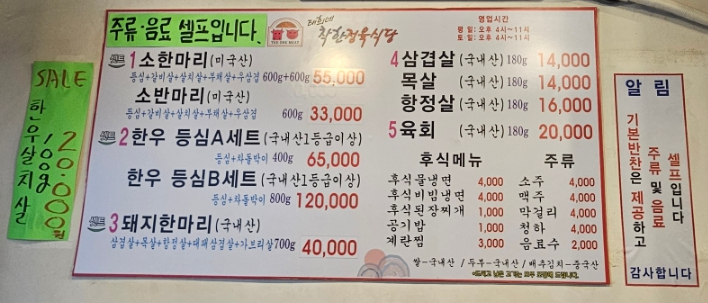 주류·음료 셀프입니다.
태희네
착한정육식당
영업시간
평 일: 오후 4시~11시
토 일: 오후 4시~11시
세트 1 소한마리(미국산)
등심+갈비살+살치살+부채살+우삼겹 600g+600g 55,000
소반마리(미국산)
등심+갈비살+살치살+부채살+우삼겹 600g 33,000
세트 2 한우 등심A세트(국내산1등급이상)
등심+차돌박이 400g 65,000
한우 등심B세트(국내산1등급이상)
등심+차돌박이 800g 120,000
세트 3 돼지한마리(국내산)
삼겹살+목살+항정살+대패삼겹살+가브리살700g 40,000
4 삼겹살(국내산)180g 14,000
목살 (국내산)180g 14,000
항정살(국내산)180g 16,000
5 육회 (국내산)180g 20,000
후식메뉴
후식물냉면 4,000
후식비빔냉면 4,000
후식된장찌개 1,000
공기밥 1,000
계란찜 3,000
주류
소주 4,000
맥주 4,000
막걸리 4,000
청하 4,000
음료수 2,000
쌀-국내산 / 두부-국내산 / 배추김치-중국산
SALE
한우살치살
100g
20.000원
알 림
기본반찬은 제공하고
주류 및 음료
셀프입니다
감사합니다